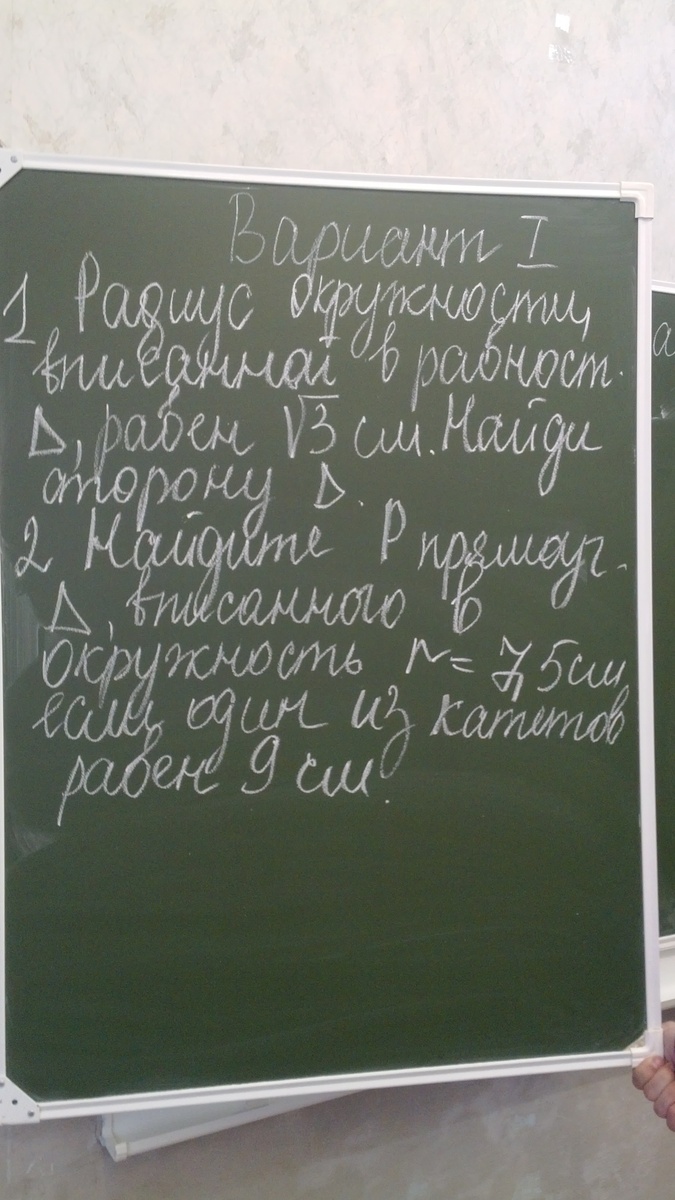 Вариант I
1 Радиус окружности,
вписанной в равност.
Δ, равен √3 см. Найди
сторону Δ.
2 Найдите P прямоуг.
Δ, вписанного в
окружность r = 7,5 см,
если один из катетов
равен 9 см.
а